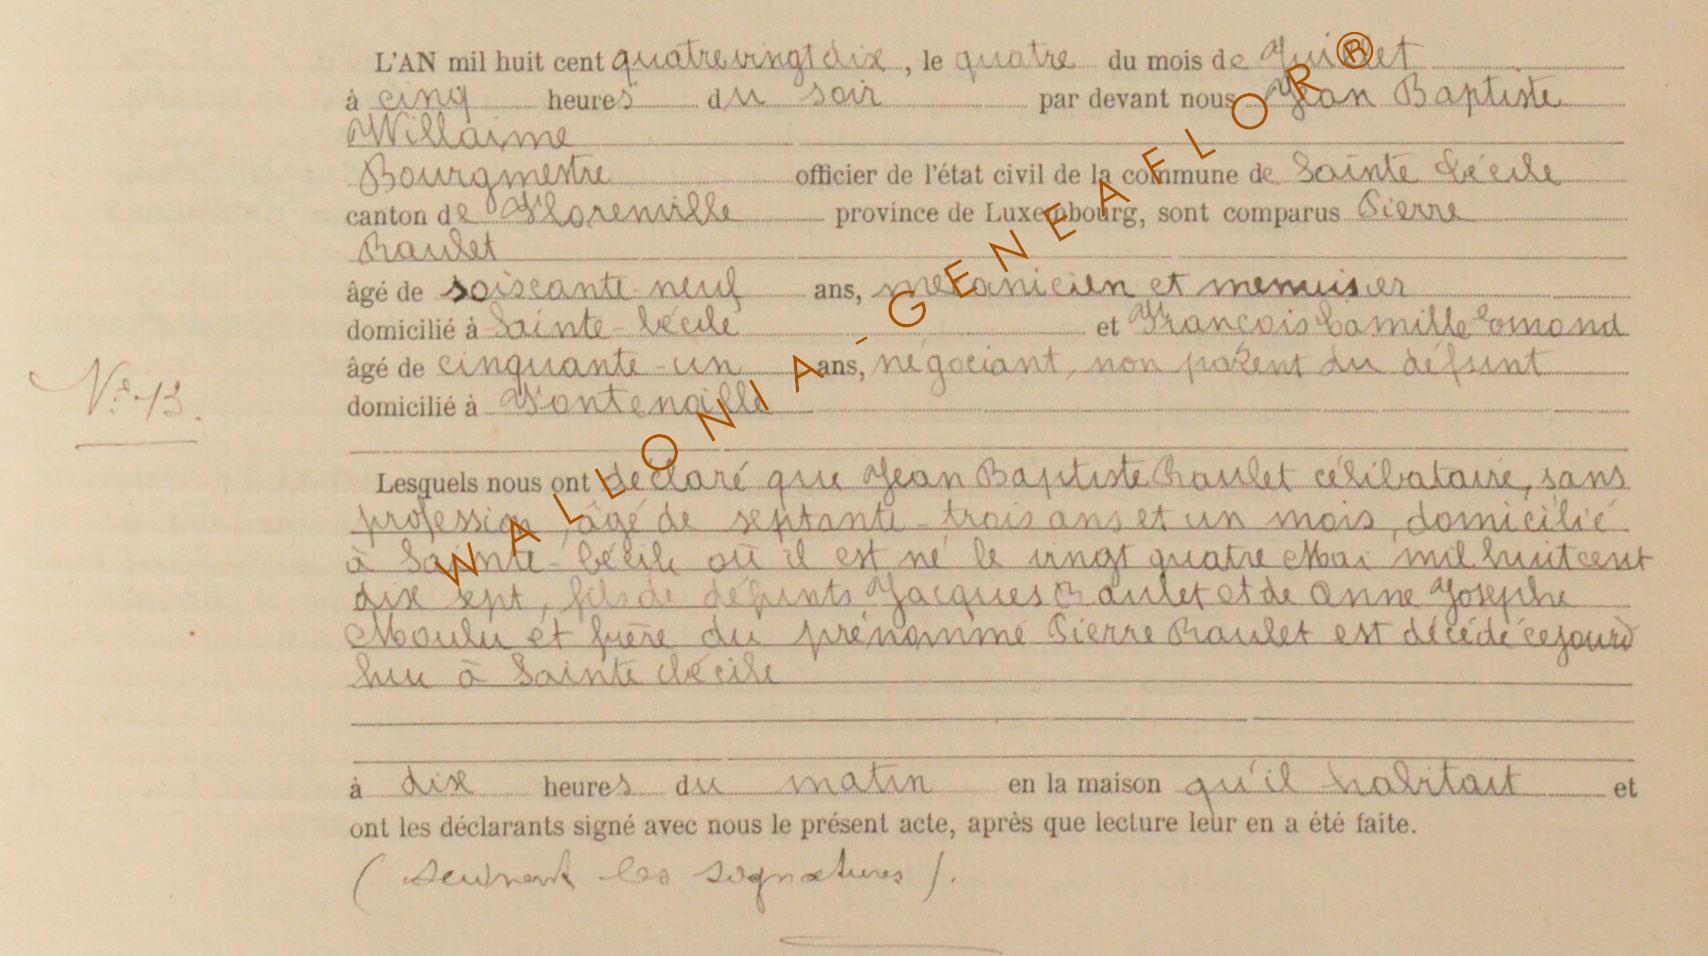 L'AN mil huit cent quatre vingt dix, le quatre du mois de Juillet
à cinq heures du soir par devant nous Jean Baptiste
Willaime
Bourgmestre officier de l'état civil de la commune de Sainte Cécile
canton de Florenville province de Luxembourg, sont comparus Pierre
Raulet
âgé de soiscante-neuf ans, mecanicien et menuisier
domicilié à Sainte-Cécile et François Camille
âgé de cinquante-un ans, négociant, non parent du défunt
domicilié à Fontenoille
N° 13.
Lesquels nous ont déclaré que Jean Baptiste Raulet célibataire, sans
profession, âgé de septante-trois ans et un mois, domicilié
à Sainte-Cécile où il est né le vingt quatre Mai mil huit cent
dix sept, fils de défunts Jacques Raulet et de Anne Josephe
Moulu et frère du prénommé Pierre Raulet est décédé cejourd
hui à Sainte Cécile
à dix heures du matin en la maison qu'il habitait et
ont les déclarants signé avec nous le présent acte, après que lecture leur en a été faite.
(suivent les signatures).
WALLONIA-GENEAFLOR®